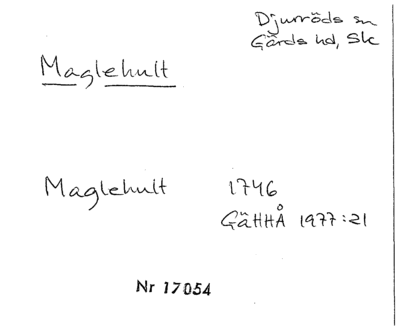 Djurröds sn
Gärds hd, Sk
Maglehult
Maglehult 1746
GäHHÅ 1977:21
Nr 17054